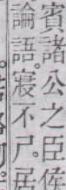 賓諸公之臣
論語。寢不尸。居